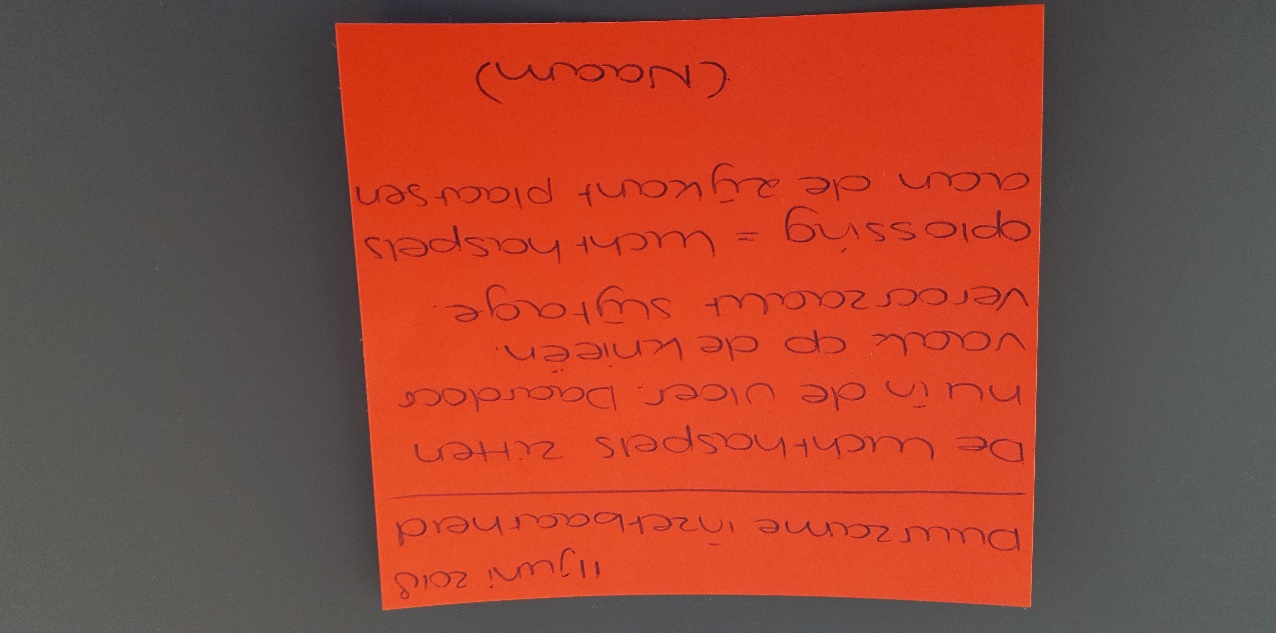 11 juni 2018
Duurzame inzetbaarheid
De luchthaspels zitten
nu in de vloer. Daardoor
vaak op de knieën.
Veroorzaakt slijtage.
oplossing = luchthaspels
aan de zijkant plaatsen
(Naam)